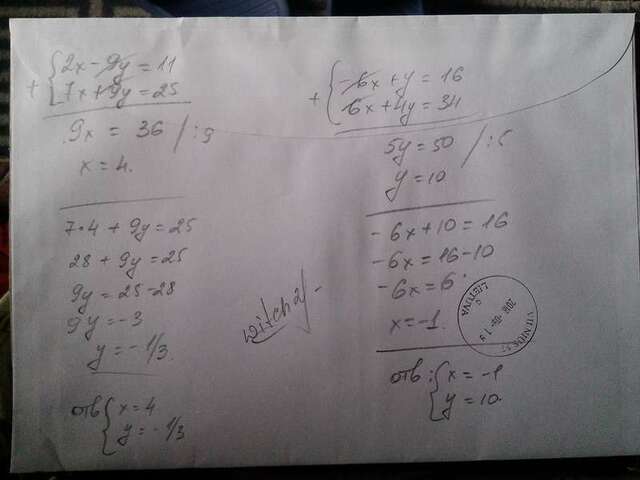 + { 2x - 9y = 11
7x + 9y = 25
9x = 36 / : 9
x = 4.
7·4 + 9y = 25
28 + 9y = 25
9y = 25-28
9y = -3
y = -1/3.
отв { x = 4
y = -1/3
witch2/-
+ { -6x + y = 16
6x + 4y = 34
5y = 50 / : 5
y = 10
-6x + 10 = 16
-6x = 16-10
-6x = 6.
x = -1.
отв: { x = -1
y = 10.
LIETUVA
VILNIUS